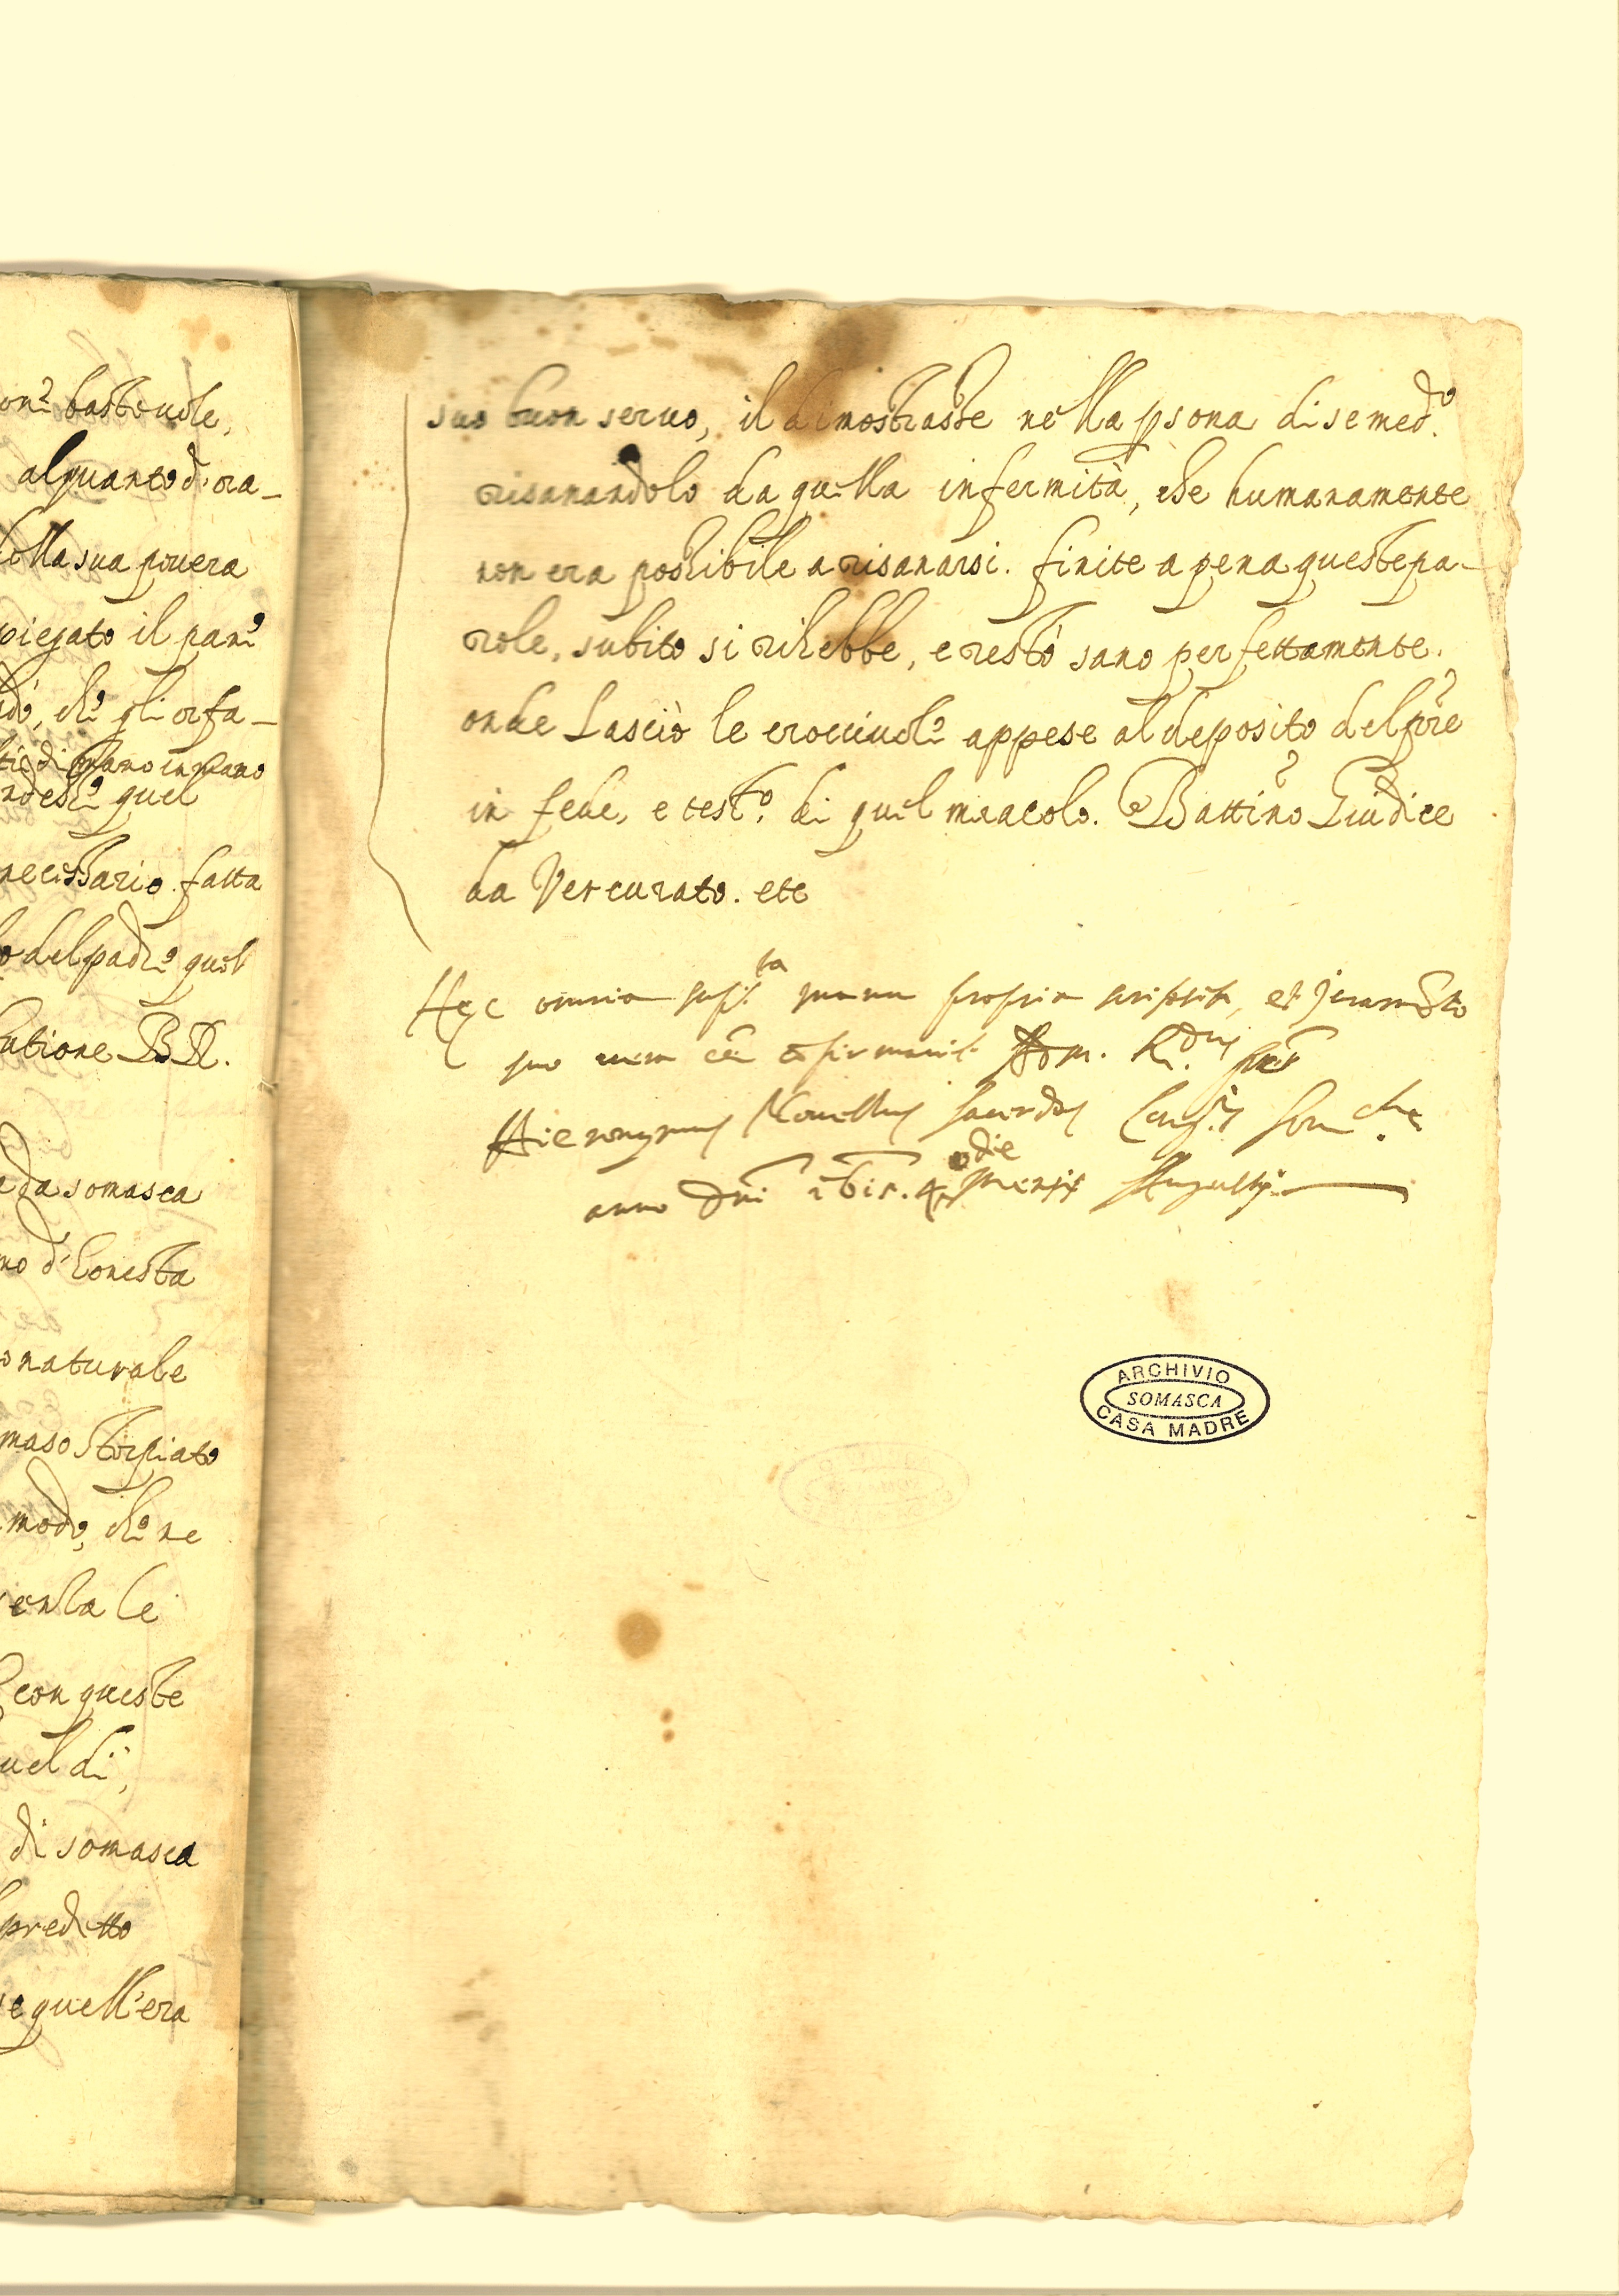 on.e bastevole,
alquanto d'ora-
della sua povera
piegato il pane
dò, che gli orfa-
di mano in mano
quel
necessario. fatta
del padre quel
latione B A.
da somasca
no d'honesta
naturale
maso storpiato
modo, che ne
senza le
con queste
quel dì,
di somasca
predetto
e quell'era
suo buon servo, il dimostrasse nella psona di se med.o
risanandolo da quella infermità, che humanamente
non era possibile a risanarsi. finite a pena queste pa-
role, subito si rihebbe, e restò sano perfettamente.
onde Lasciò le crocciuole appese al deposito del pre
in fede, e test.o di quel miracolo. Battino Giudice
da Vercurato. etc
Hęc omnia sup.ta manu propria scripsit, et juramẽto
suo vera eẽ affirmavit Adm. R.dus pr̃
Hieronymus Novellus sacerdos Cong.is Som.chae
anno Dñi 1615. 4 die Mensis Augusti
ARCHIVIO
SOMASCA
CASA MADRE